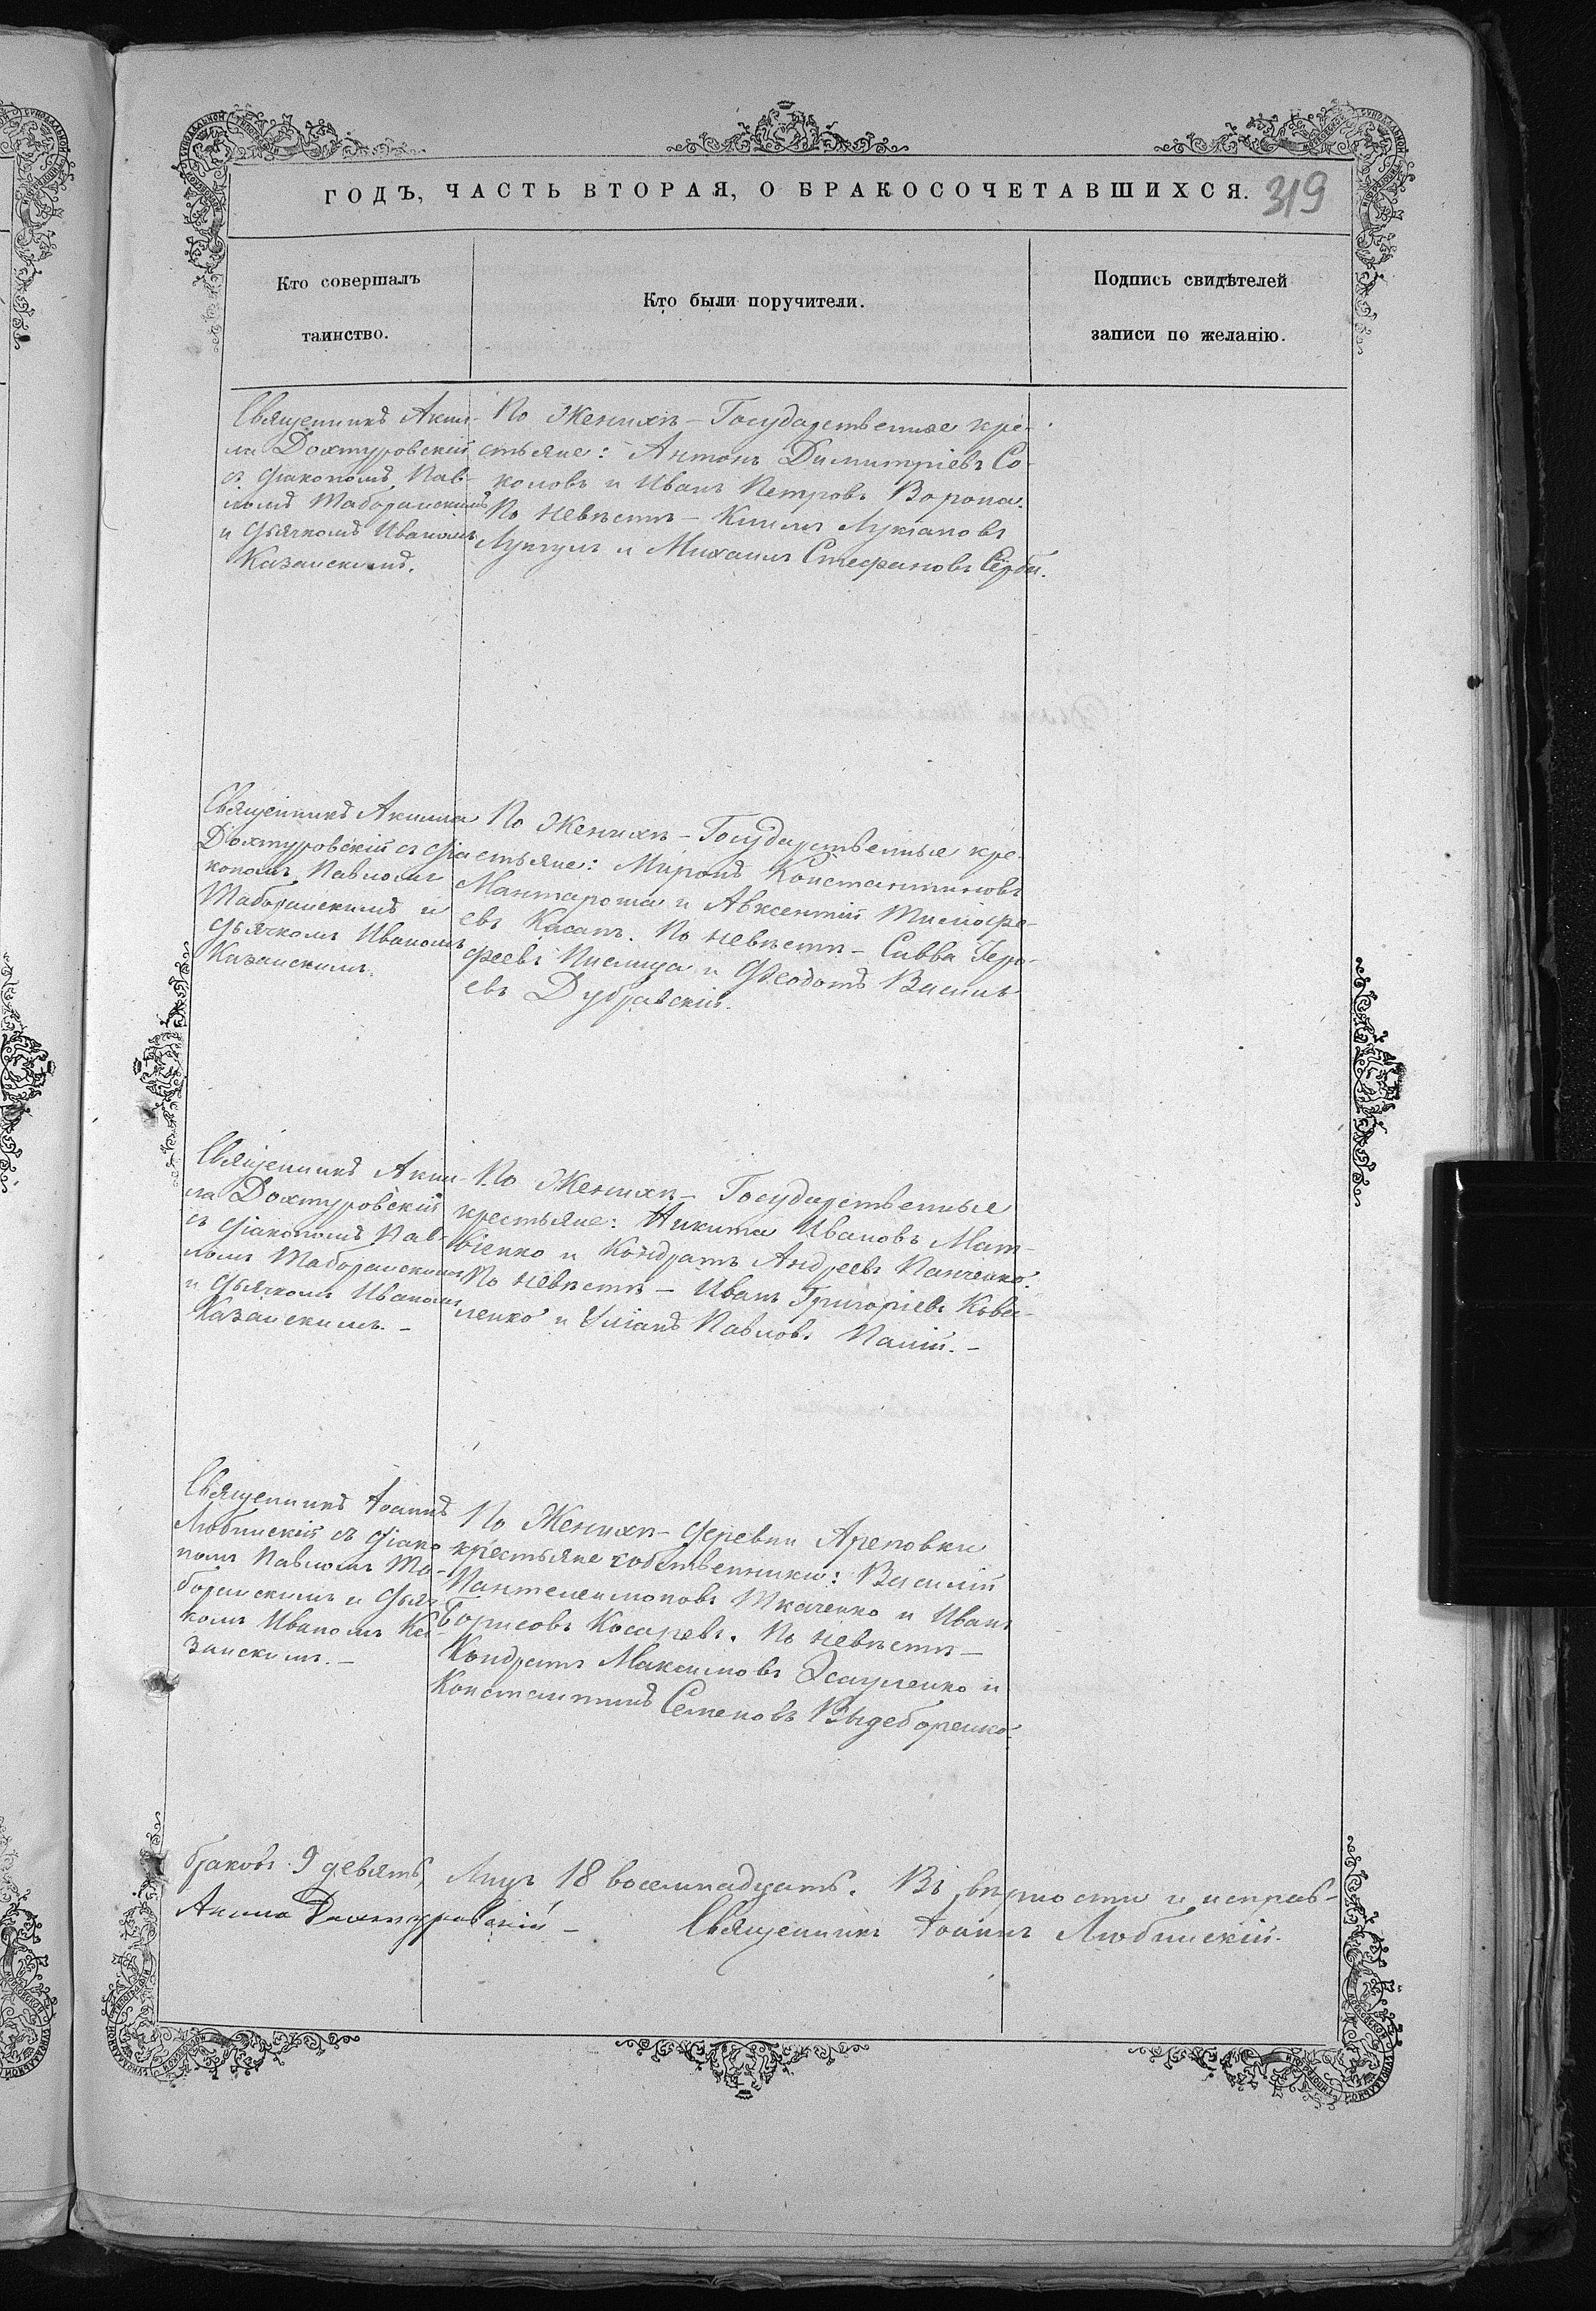 ГОДЪ, ЧАСТЬ ВТОРАЯ, О БРАКОСОЧЕТАВШИХСЯ.
319
Кто совершалъ
таинство.
Кто были поручители.
Подпись свидѣтелей
записи по желанію.
Священникъ Аки-
ла Дохтуровскій
съ діакономъ Пав-
ломъ Таборанскимъ
и дьячкомъ Иваномъ
Казанскимъ.
По Женихѣ – Государственные кре-
стьяне: Антонъ Димитріевъ Со-
коловъ и Иванъ Петровъ Ворона.
По невѣстѣ – Лукіановъ
и Михаилъ Стефановъ Серба.
Священникъ Акила
Дохтуровскій съ діа
кономъ Павломъ
Таборанскимъ и
дьячкомъ Иваномъ
Казанскимъ.
По Женихѣ – Государственные кре-
стьяне: Миронъ Константиновъ
Мантароша и Авксентій Тимофе-
евъ Касапъ. По невѣстѣ – Савва
феевъ и Феодотъ Василь
евъ Дубравскій.
Священникъ Аки
ла Дохтуровскій
съ діакономъ Пав-
ломъ Таборанскимъ
и дьячкомъ Иваномъ
Казанскимъ. –
По Женихѣ – Государственные
крестьяне: Никита Ивановъ Мат-
віенко и Кондратъ Андреевъ Панченко.
По невѣстѣ – Иванъ Григоріевъ Кова-
ленко и Уліанъ Павловъ Палій. –
Священникъ Іоаннъ
Любинскій съ діако
номъ Павломъ Та-
боранскимъ и дьяч
комъ Иваномъ Ка-
занскимъ. –
По Женихѣ – деревни Ареповки
крестьяне собственники: Василій
Пантелеимоновъ Ткаченко и Иванъ
Борисовъ Косаревъ. По невѣстѣ –
Кондратъ Максимовъ Эсауленко и
Константинъ Семеновъ
браковъ 9 девять, Лицъ 18 восемнадцать. Въ вѣрности и исправ-
Акила Дохтуровскій – Священникъ Іоаннъ Любинскій.